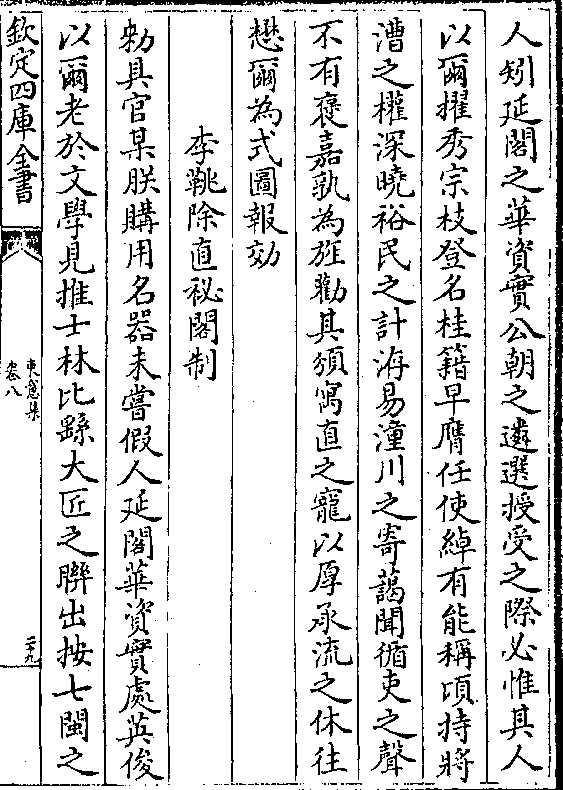 人矧延閣之華資實公朝之遴選授受之際必惟其人
以爾擢秀宗枝登名桂籍早膺任使綽有能稱頃持將
漕之權深曉裕民之計洊易潼川之寄藹聞循吏之聲
不有褒嘉孰為旌勸其頒寓直之寵以厚承流之休往
懋爾為式圖報効
李韑除直祕閣制
勑具官某朕賸用名器未嘗假人延閣華資實處英俊
以爾老於文學見推士林比繇大匠之聯出按七閩之
欽定四庫全書
東窻集
卷八
二十九